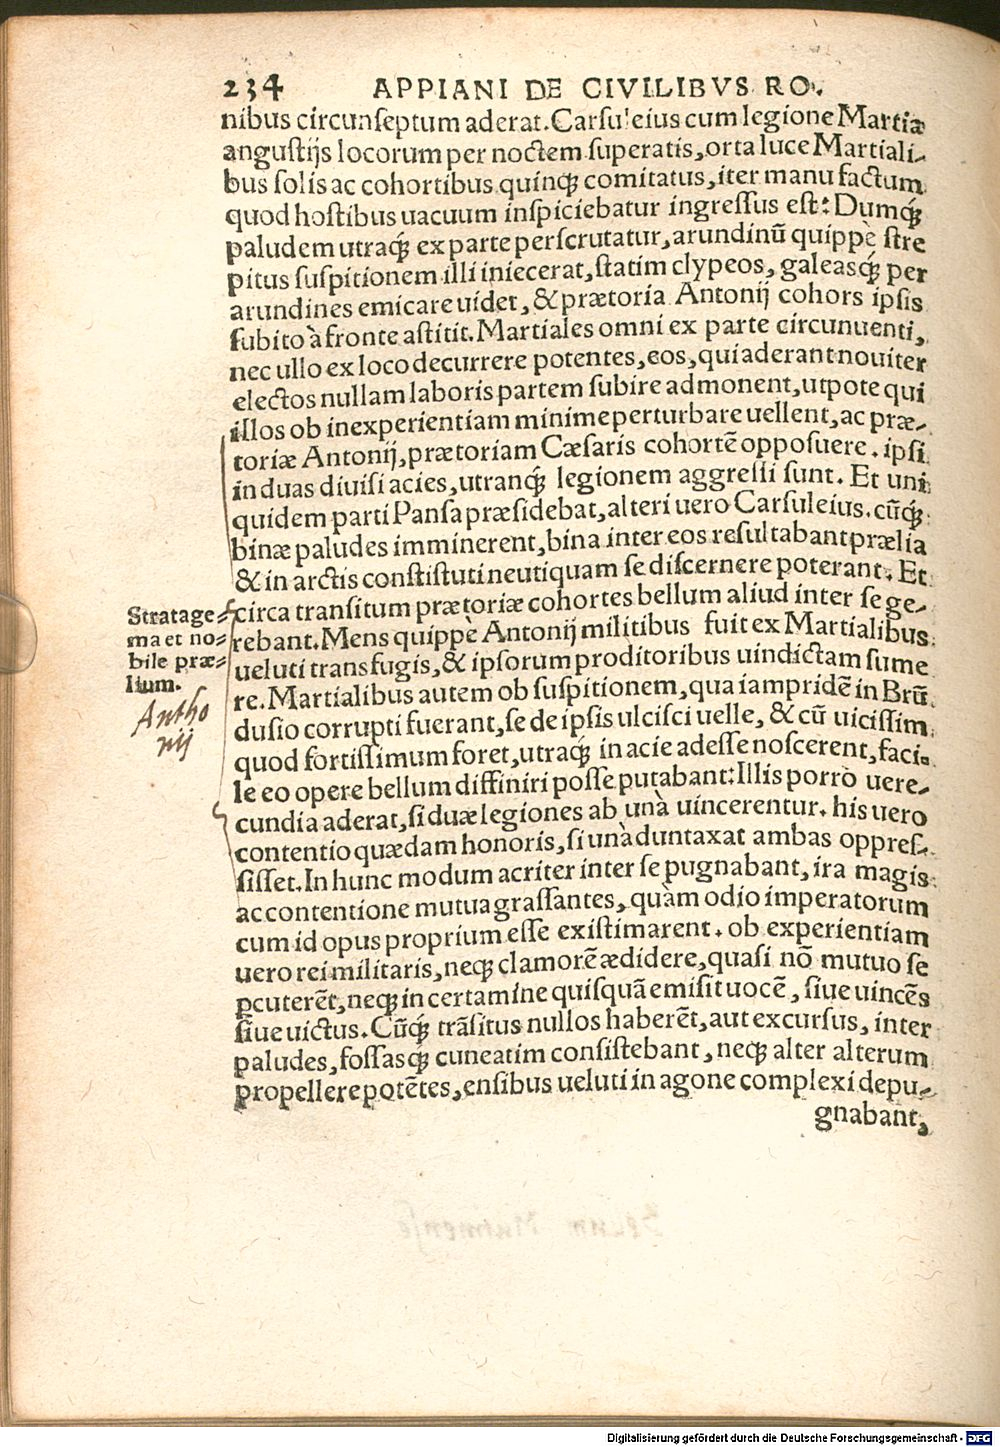 234 APPIANI DE CIVILIBVS RO.
nibus circunseptum aderat. Carsuleius cum legione Martia
angustijs locorum per noctem superatis, orta luce Martiali-
bus solis ac cohortibus quinq; comitatus, iter manu factum
quod hostibus uacuum inspiciebatur ingressus est: Dumq́;
paludem utraq́; ex parte perscrutatur, arundinũ quippè stre
pitus suspitionem illi iniecerat, statim clypeos, galeasq́; per
arundines emicare uidet, & prætoria Antonij cohors ipsis
subito à fronte astitit. Martiales omni ex parte circunuenti,
nec ullo ex loco decurrere potentes, eos, qui aderant nouiter
electos nullam laboris partem subire admonent, utpote qui
illos ob inexperientiam minime perturbare uellent, ac præ-
toriæ Antonij, prætoriam Cæsaris cohortẽ opposuere. ipsi
in duas diuisi acies, utranq́; legionem aggressi sunt. Et uni
quidem parti Pansa præsidebat, alteri uero Carsuleius. cũq́;
binæ paludes imminerent, bina inter eos resultabant prælia
& in arctis constistuti neutiquam se discernere poterant. Et
circa transitum prætoriæ cohortes bellum aliud inter se ge-
rebant. Mens quippè Antonij militibus fuit ex Martialibus
ueluti transfugis, & ipsorum proditoribus uindictam sume
re. Martialibus autem ob suspitionem, qua iampridẽ in Brũ
dusio corrupti fuerant, se de ipsis ulcisci uelle, & cũ uicissim
quod fortissimum foret, utraq́; in acie adesse noscerent, faci-
le eo opere bellum diffiniri posse putabant: Illis porrò uere-
cundia aderat, si duæ legiones ab unà uincerentur. his uero
contentio quædam honoris, si unà duntaxat ambas oppres-
sisset. In hunc modum acriter inter se pugnabant, ira magis
ac contentione mutua grassantes, quàm odio imperatorum
cum id opus proprium esse existimarent. ob experientiam
uero rei militaris, neq; clamorẽ ædidere, quasi nõ mutuo se
ꝑcuterẽt, neq; in certamine quisquã emisit uocẽ, siue uincẽs
siue uictus. Cũq́; trãsitus nullos haberẽt, aut excursus, inter
paludes, fossasq́; cuneatim consistebant, neq; alter alterum
propellere potẽtes, ensibus ueluti in agone complexi depu-
gnabant,
Stratage-
ma et no-
bile præ-
lium.
Antho
nij
Digitalisierung gefördert durch die Deutsche Forschungsgemeinschaft - DFG